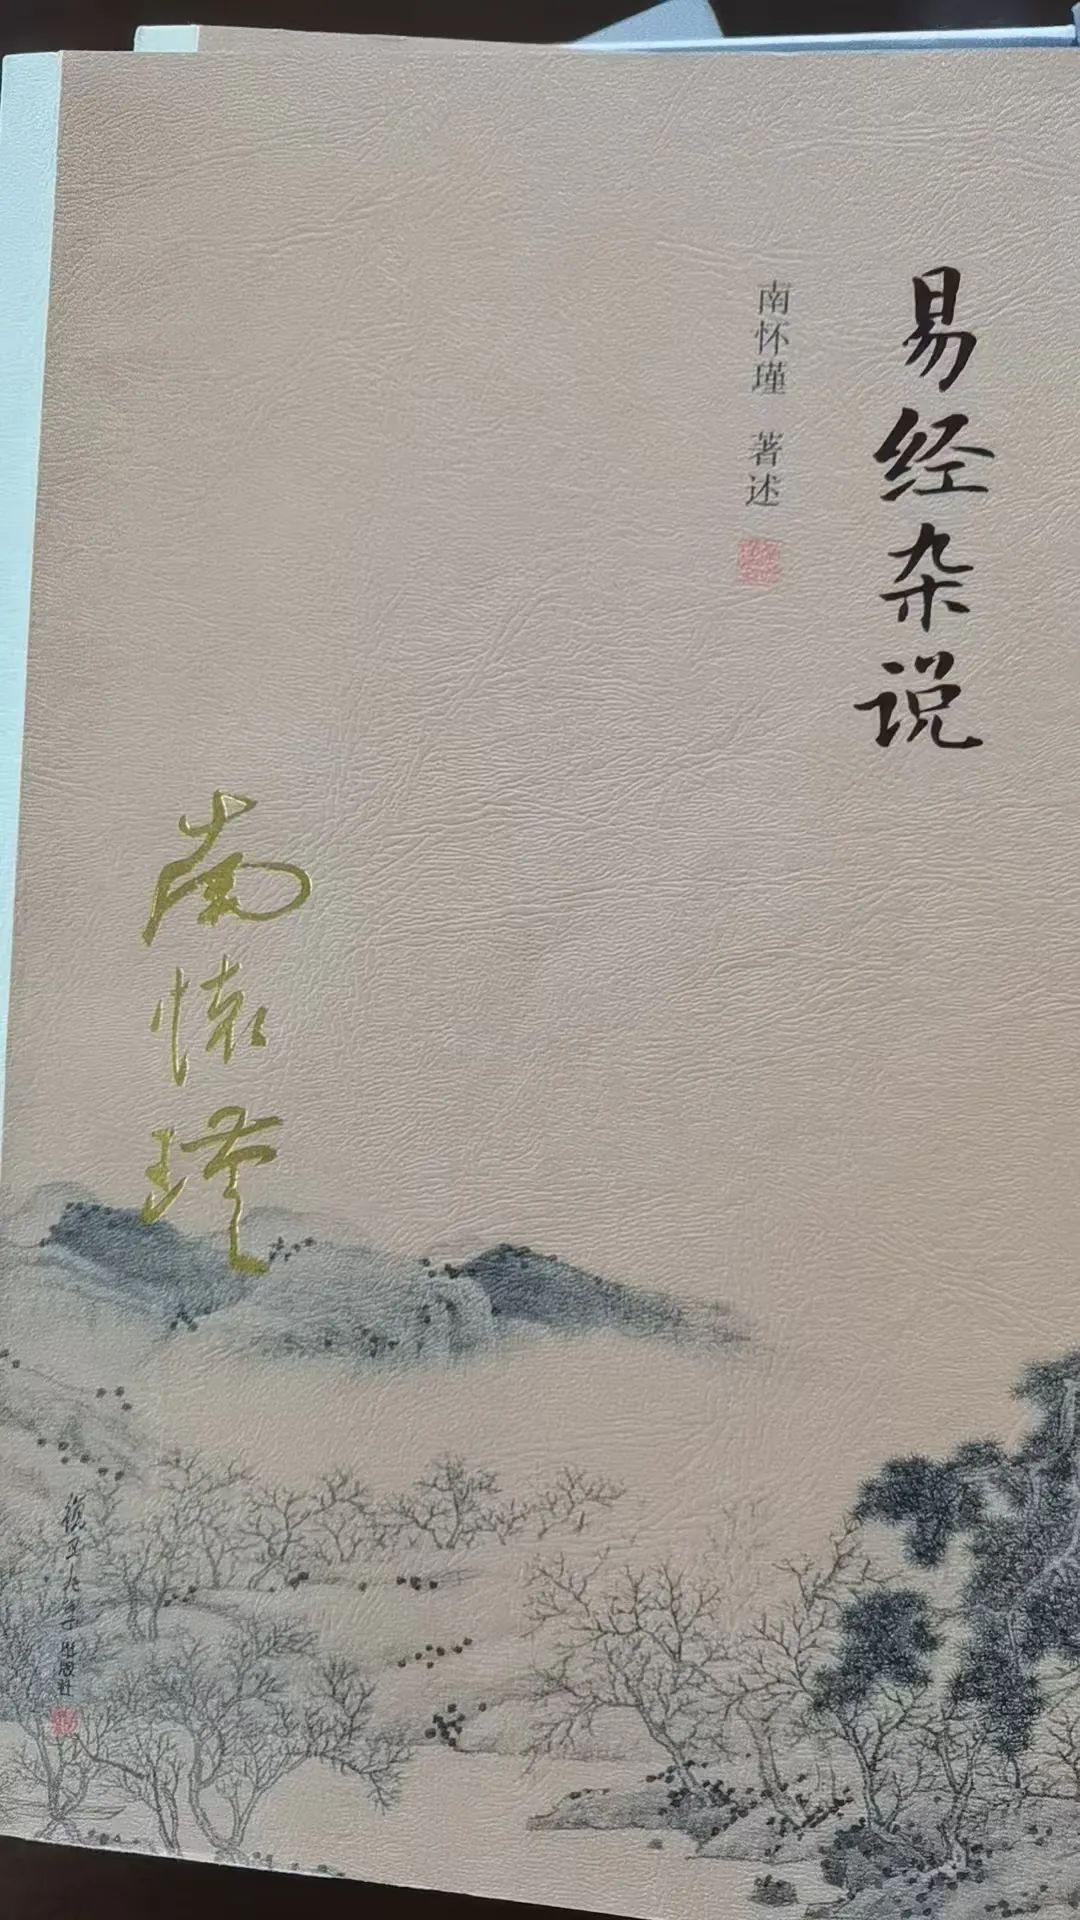 易经杂说
南怀瑾 著述
南怀瑾
復旦大學出版社